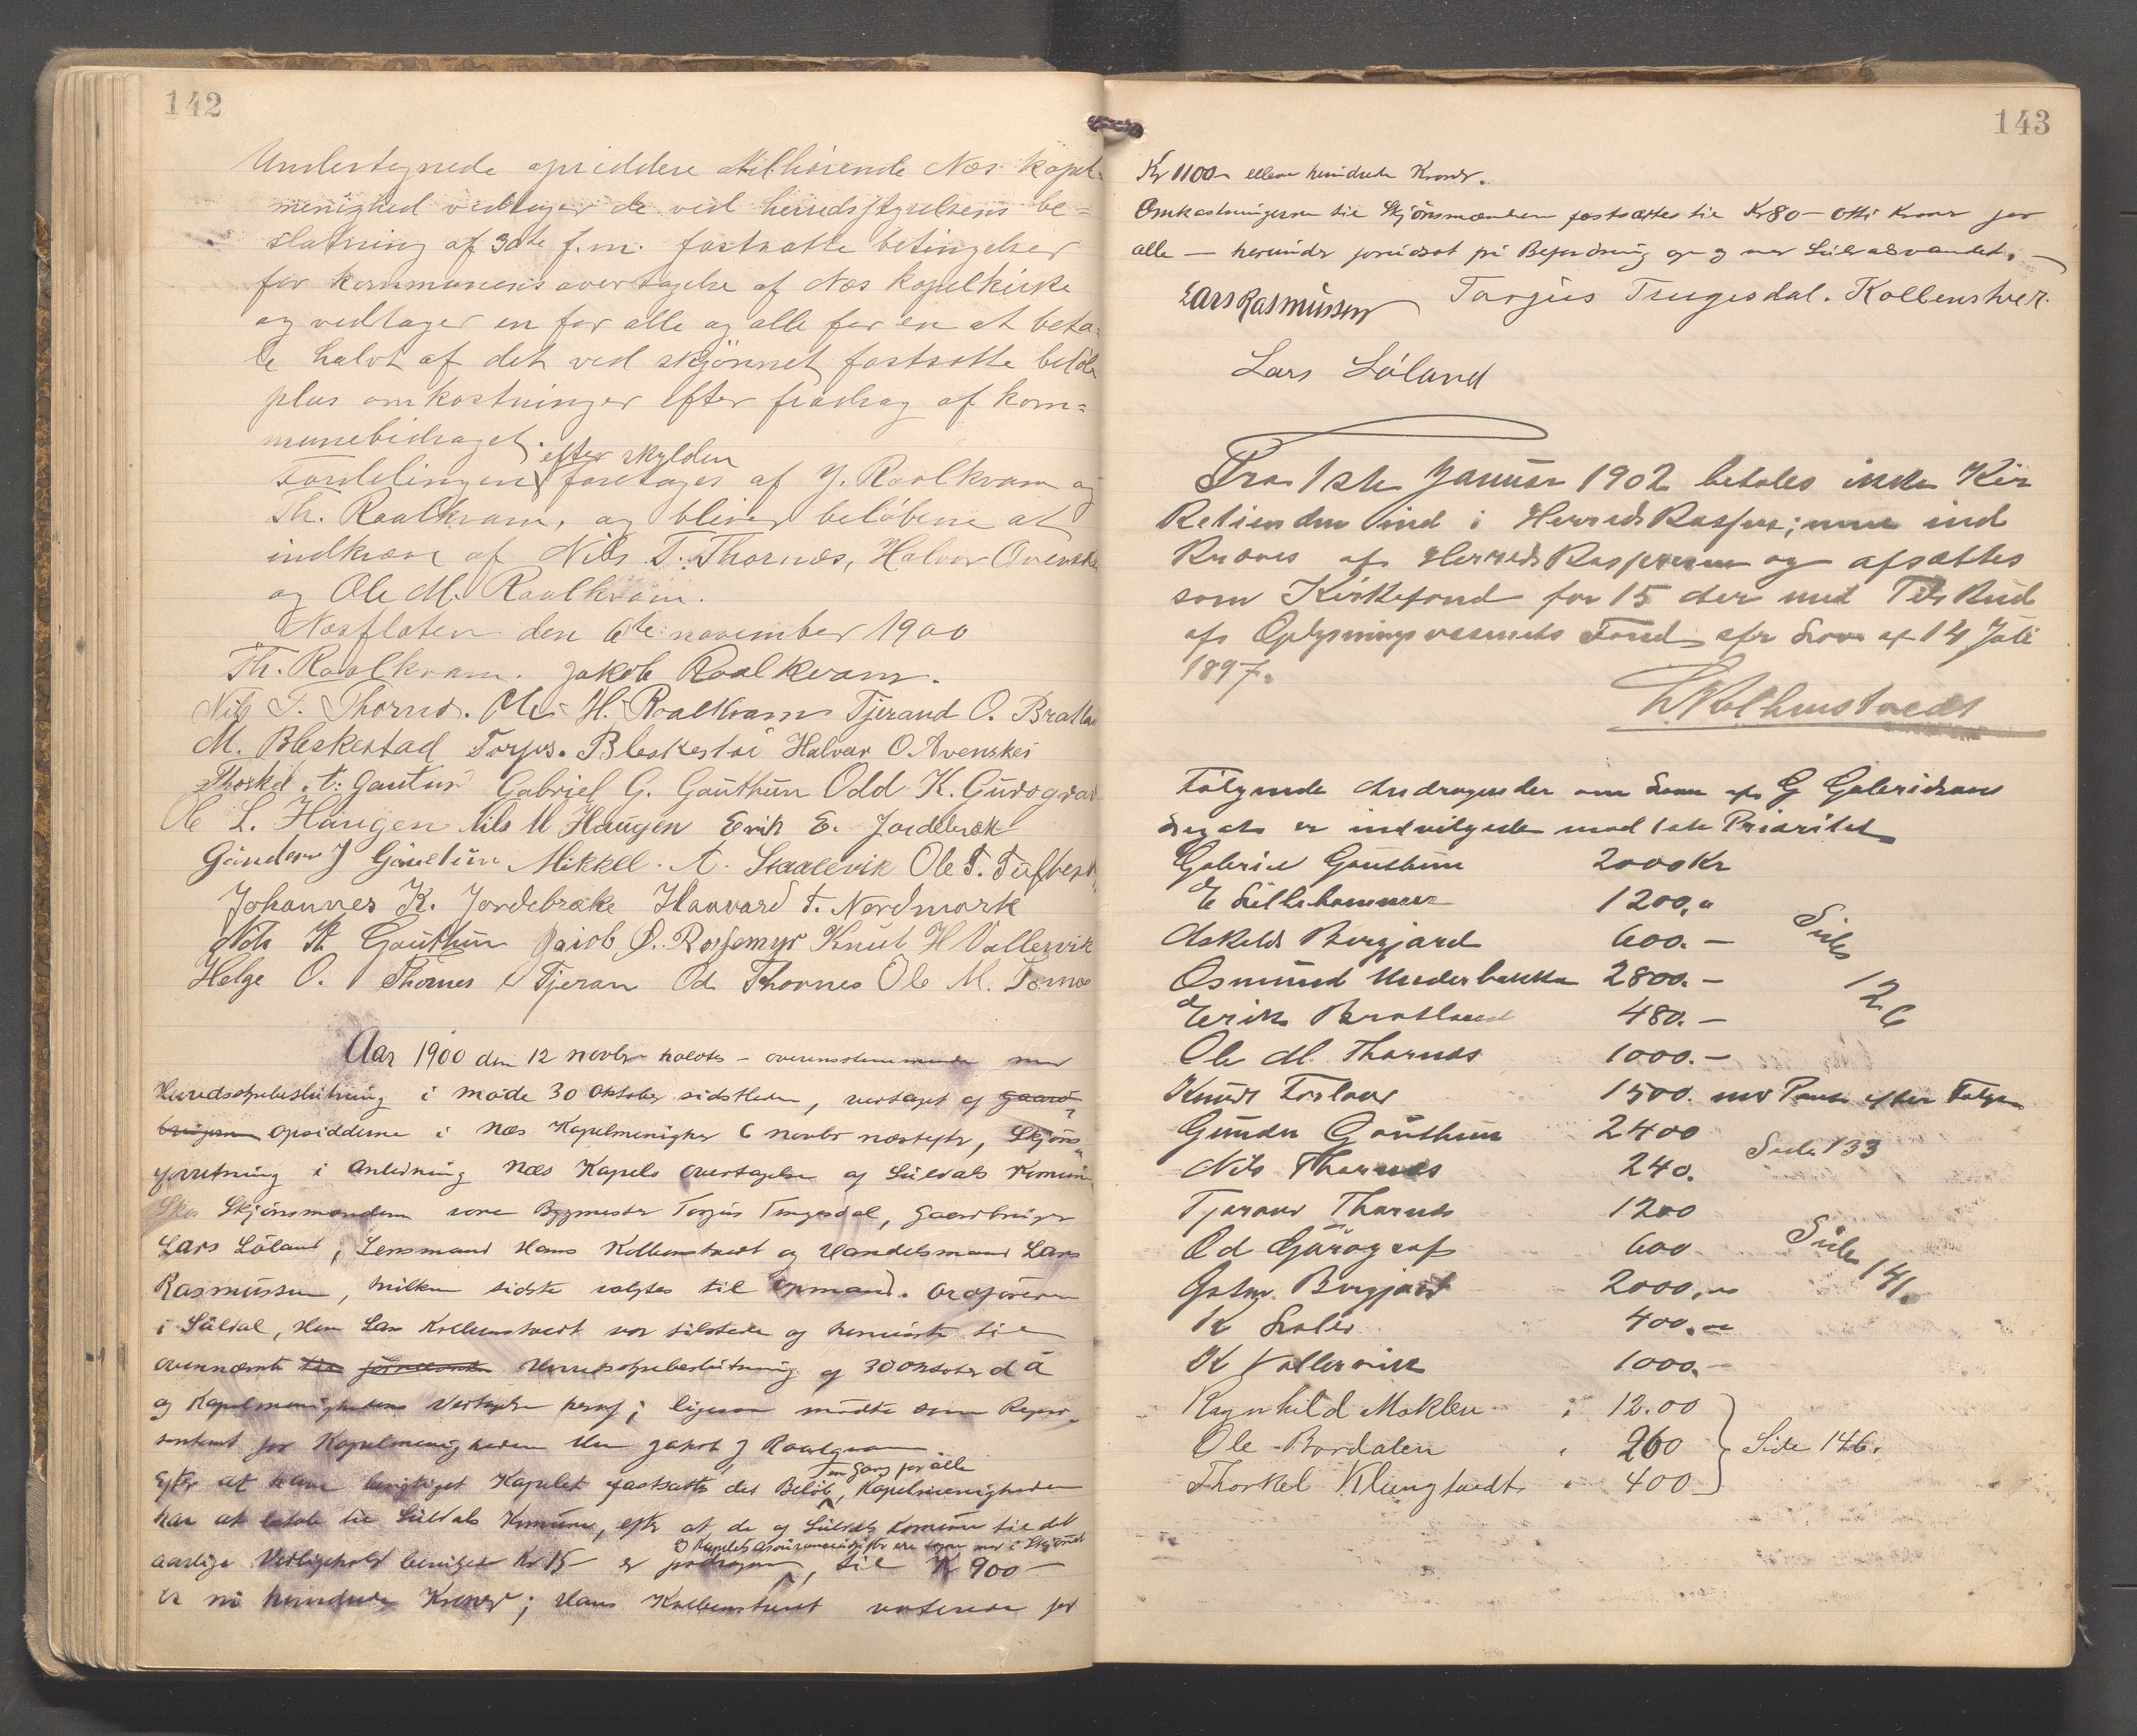 142
Undertegnede opsiddere tilhørende Næs kapel-
menighed vedtager de ved herredsstyrelsens be=
slutning af 30te f.m. fastsatte betingelser
for kommunens overtagelse af Næs kapelkirke
og vedtager en for alle og alle for en at beta=
le halvt af det ved skjønnet fastsatte beløb
plus omkostninger efter fradrag af kom=
munebidraget.
efter skylden
Fordelingen foretages af J. Raalkvam og
Th. Raalkvam, og bliver beløbene at
indkræve af Nils T. Thornæs, Halvor Ovenskei
og Ole M. Raalkvam.
Næsflaten den 6te november 1900
Th. Raalkvam. Jakob Raalkvam.
Nils T. Thornes. Ole H. Raalkvam Tjerand O. Bratland
M. Bleskestad Torjus. Bleskestai Halvar O. Avenskei
Thorkel. t: Gautun Gabriel G. Gauthun Odd K. Gurograv
Ole L. Haugen Nils M Haugen Erik E. Jordebræk
Gunder J Gautun Mikkel. A. Staalevik Ole T.
Johannes K. Jordebrække Haavard t. Nordmork
Nils K Gauthun Jacob O. Knut H Vallervik
Helge O. Thornes Tjeran Od Thornes Ole M. Tornes
Aar 1900 den 12 Novbr holdtes – overensstemmende med
Herredsstyrebeslutning i møde 30 Oktober sidstleden, vedtaget af gaard-
brugerne opsidderne i Næs Kapelmenighed 6 Novbr næstefter, Skjøns-
forretning i Anledning Næs Kapels Overtagelse af Suldals Kommune
Skjønsmændene vare Bygmester Torjus Tengesdal, Gaardbruger
Lars Løland, Lensmand Hans Kolbenstvedt og Handelsmand Lars
Rasmussen, hvilken sidste valgtes til Opmand. Ordføreren
i Suldal, Herr Lars Kolbenstvedt var tilstede og henviste til
ovennævnte Herredsstyrebeslutning af 30 Oktober d A
og Kapelmenighedens Vedtagelse heraf; ligesom mødte som Repræ-
sentant for Kapelmenigheden Herr Jakob J Raalkvam
en gang for alle
Efter at have besigtiget Kapelet fastsattes det Beløb, Kapelmenigheden
har at betale til Suldals Komune, efter at de af Suldals Komune til det
aarlige Vedligehold bevilgede Kr 15– er fradragen, til Kr 900–
er ni hundrede Kroner; Hans Kolbenstvedt voterede for
143
Kr 1100– elleve hundrede Kroner.
Omkostningerne til Skjønsmændene fastsattes til Kr 80– otti Kroner for
alle – herunder forudsat fri Befordring op og ned Suldalsvandet. –
Lars Rasmussen Torjus Tengesdal. Kolbenstvedt.
Lars Løland
Fra 1ste Januar 1902 betales ikke Kir
Ketienden ind i HerredsKassen; men ind
Kræves af HerredsKassereren og afsættes
som Kirkefond for 15 Aar med TilsKud
af Oplysningsvæsenets Fond efter Lov af 14 Juli
1897.
Følgende Andragender om Laan af G Gabrielsens
Legat er indvilgede mod 1ste Prioritet
Gabriel Gauthun 2000 Kr
E Lillehammer 1200,"
Askeld Bergjord 600. – Side
Osmund Underbakke 2800. – 126
Erik Bratland 480. –
Ole M. Thornæs 1000. –
Knut Førland 1500.
Gunder Gauthun 2400
Nils Thornæs 240. Side 133
Tjerand Thornæs 1200
Od Gurograf 600 Side
Bergjord 2000," 141.
400,"
K Vallervik 1000. –
Ragnhild Moklev " 12.00
Ole Bordalen " 260 Side 146.
Thorkel Klungtvedt " 400